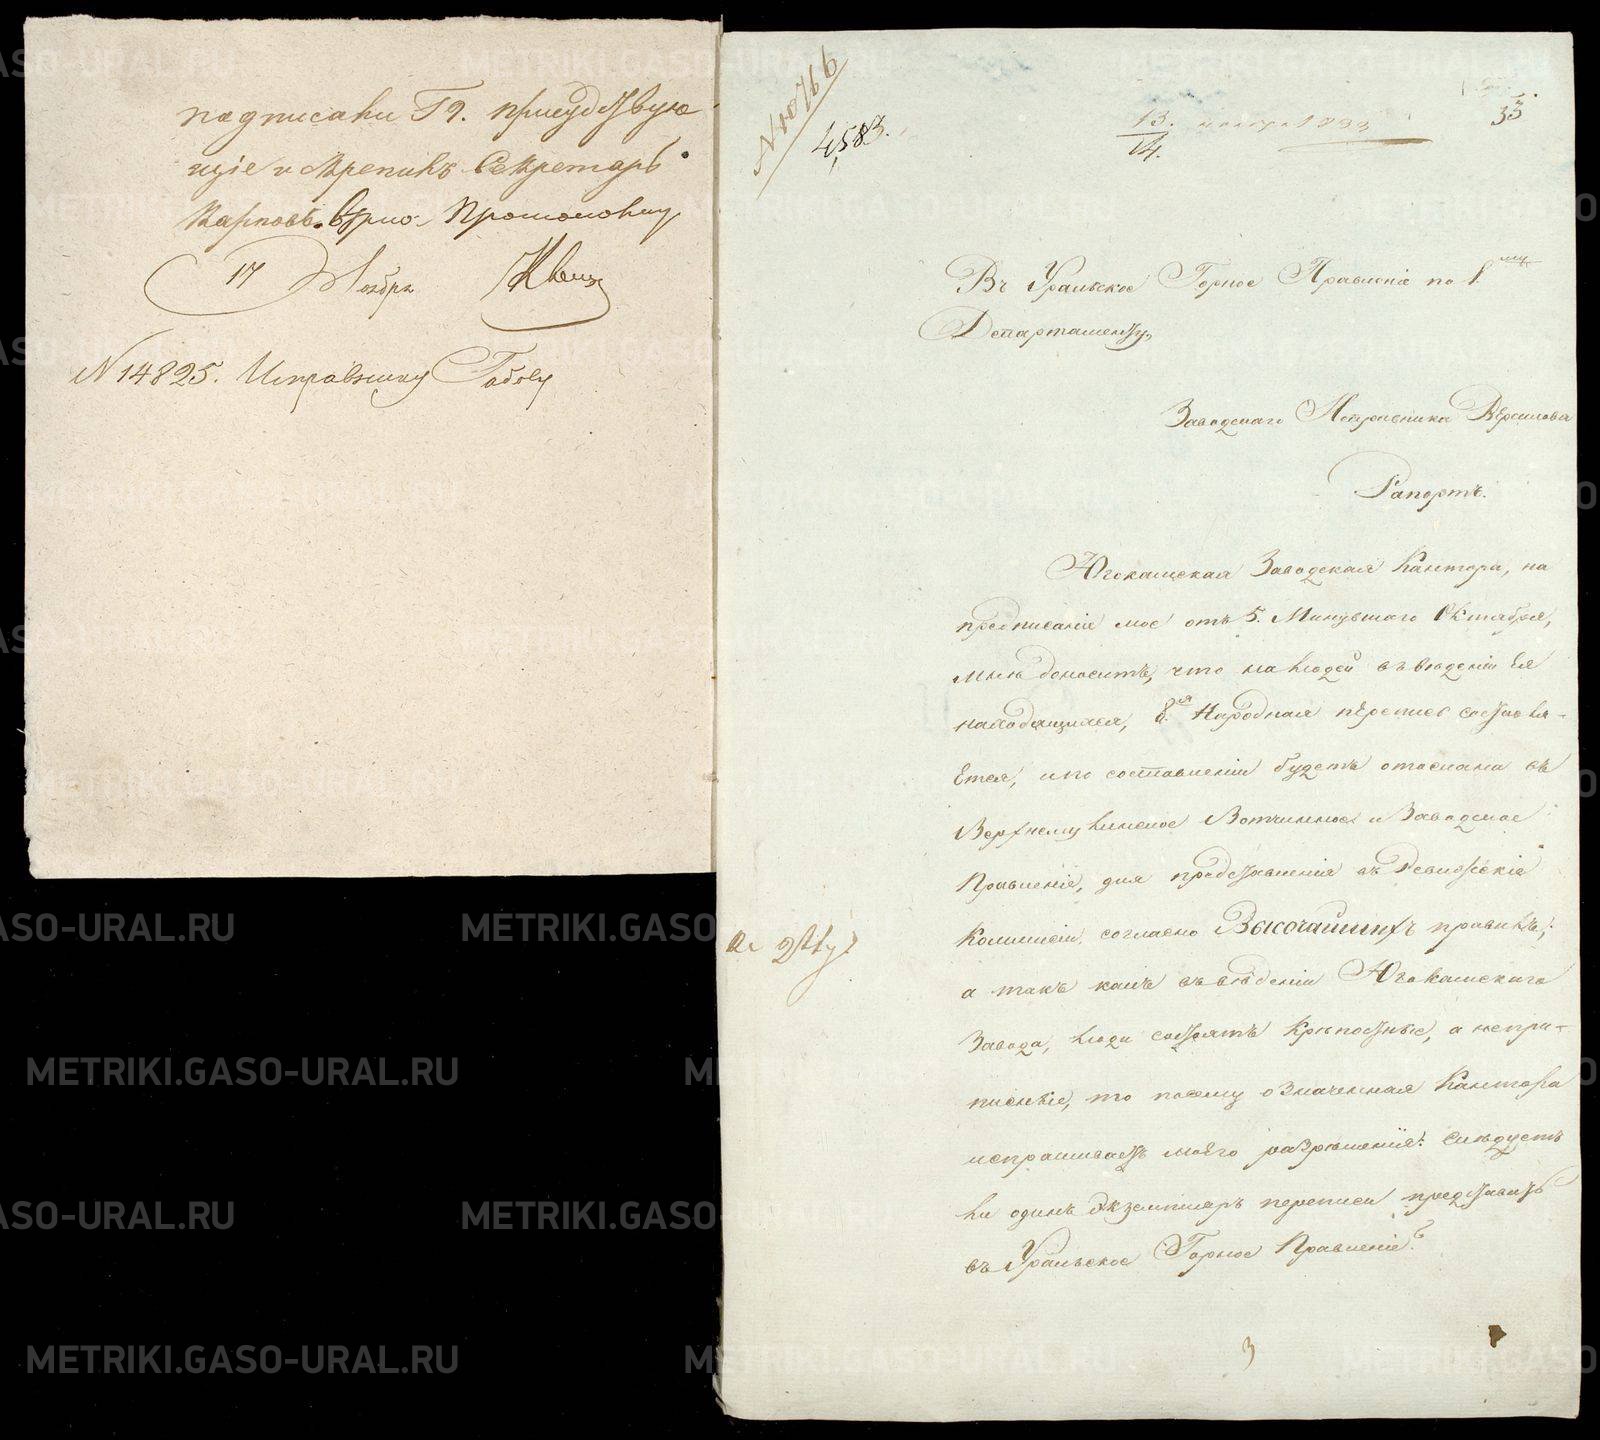 подписали Гг. присудствую
щіе и скрепилъ Секретарь
Карповъ. Вѣрно.
17 Ноября
N 14825. Исправнику
N 10766
4583.
13.
14.
ноября 1833
33
Въ Уральское Горное Правленіе по 1му
Департаменту,
Заводскаго Исправника
Рапортъ.
Югокамская Заводская Кантора, на
предписаніе мое отъ 5. Минувшаго Октября,
мнѣ доноситъ, что на людей въ вѣденіи Ея
находящихся, 8я Народная перепись составля-
Ется, и по составленіи будетъ отослана въ
Верхнемуллинское Вотчинное и Заводское
Правленіе, для представленія въ Ревижскія
Коммисіи, согласно Высочайшихъ правилъ;
а такъ какъ въ вѣденіи Югокамскаго
Завода, люди состоятъ Крѣпостные, а непри-
писные, то посему означенная Кантора
испрашиваетъ моего разрѣшенія: слѣдуетъ
ли одинъ экземпляръ переписи представить
въ Уральское Горное Правленіе?
3
METRIKI.GASO-URAL.RU